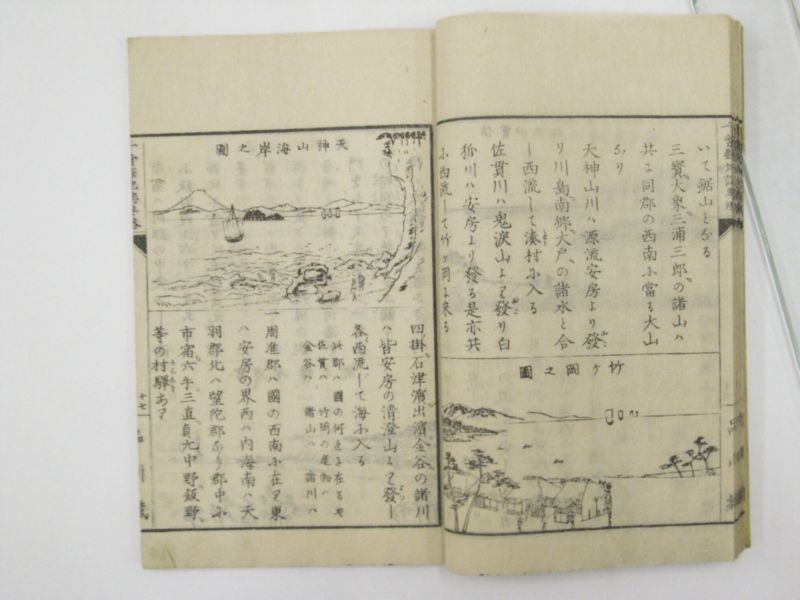 いて鋸山となる
三寳、大象、三浦三郎、の諸山ハ
共に同郡の西南に當る大山
なり
天神山川ハ源流安房より發
り川島南郷大戸、の諸水と合
し西流して湊村に入る
佐貫川ハ鬼涙山より發り白
狐川ハ安房より發る是亦共
に西流して竹ヶ岡に來る
竹ヶ岡之圖
天神山海岸之圖
四掛石津濱出濱金谷の諸川
ハ皆安房の清澄山より發し
各西流して海に入る
此郡ハ國の何れに在るや
佐貫ハ竹岡の産物ハ
金谷ハ諸山ハ諸川ハ
一周准郡ハ國の西南に在り東
ハ安房の界西ハ内海南ハ天
羽郡北ハ望陀郡なり郡中に
市宿六手三直貞元中野飯野、
等の村驛あり
十七